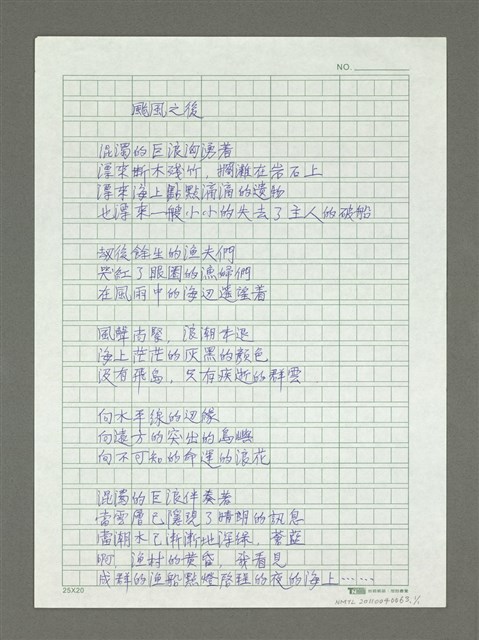 NO.
颱風之後
混濁的巨浪洶湧著
漂來斷木殘竹，擱灘在岩石上
漂來海上點點滴滴的遺物
也漂來一艘小小的失去了主人的破船
劫後餘生的漁夫們
哭紅了眼圈的漁婦們
在風雨中的海边遥望着
風聲尚緊，浪潮未退
海上茫茫的灰黑的顏色
没有飛鳥，只有疾逝的群雲
向水平線的边緣
向遠方的突出的島嶼
向不可知的命運的浪花
混濁的巨浪伴奏著
當雲層已隱現了晴朗的訊息
當潮水已漸漸地浮綠，蒼藍
啊，漁村的黄昏，我看見
成群的漁船點燈啓程的夜的海上……
25X20